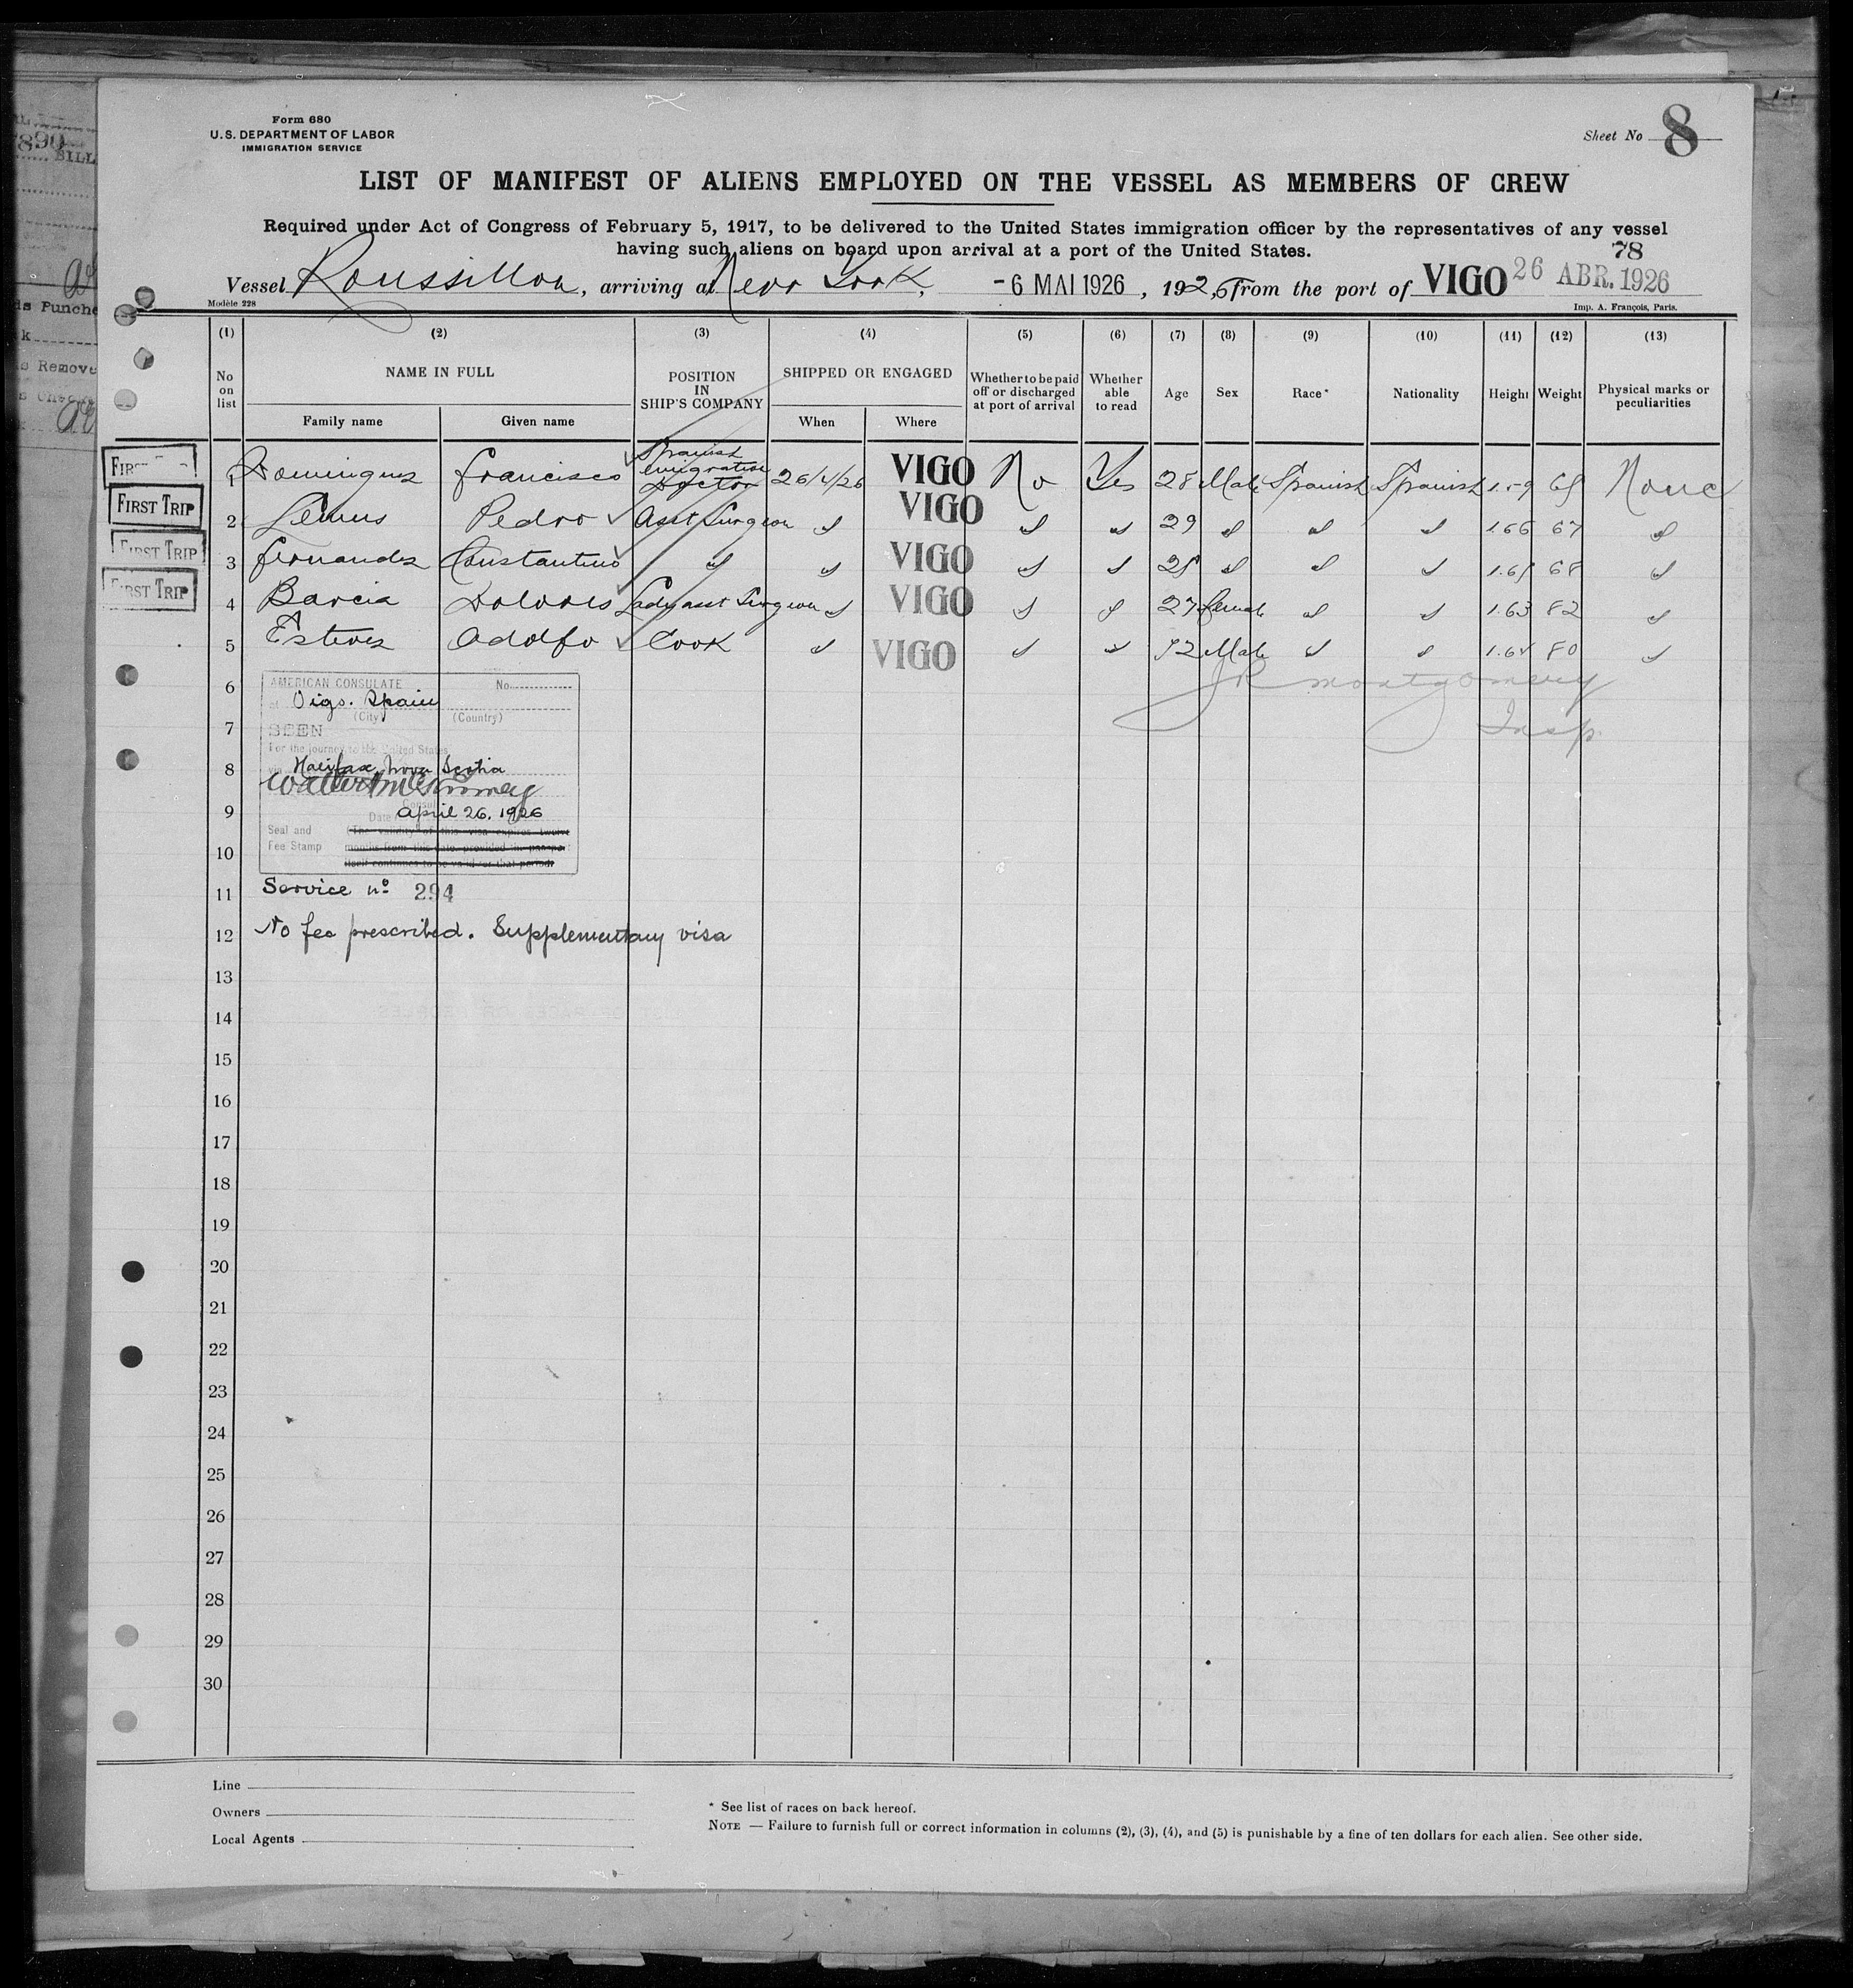 Form 680
U.S. DEPARTMENT OF LABOR
IMMIGRATION SERVICE
Sheet No 8
LIST OF MANIFEST OF ALIENS EMPLOYED ON THE VESSEL AS MEMBERS OF CREW
Required under Act of Congress of February 5, 1917, to be delivered to the United States immigration officer by the representatives of any vessel
having such aliens on board upon arrival at a port of the United States.
78
Vessel Roussillon, arriving at New York, -6 MAI 1926, 1926, from the port of VIGO 26 ABR. 1926
Modèle 228
Imp. A. François, Paris.
(1) (2) (3) (4) (5) (6) (7) (8) (9) (10) (11) (12) (13)
No on list NAME IN FULL POSITION IN SHIP'S COMPANY SHIPPED OR ENGAGED Whether to be paid off or discharged at port of arrival Whether able to read Age Sex Race* Nationality Height Weight Physical marks or peculiarities
Family name Given name When Where
1 Domingues Francisco Spanish emigration Doctor 26/4/26 VIGO No Yes 28 Male Spanish Spanish 1.59 None
FIRST TRIP 2 Pedro Asst Surgeon VIGO 29 1.66 67
FIRST TRIP 3 Fernandez Constantino VIGO 68
FIRST TRIP 4 Barcia Dolores Lady asst Surgeon VIGO 27 Female 1.63 82
5 Estevez Adolfo Cook VIGO Male 80
JR Montgomery
Insp.
6
AMERICAN CONSULATE No.
at Vigo. Spain
(City) (Country)
7
SEEN
For the journey to the United States
8
via Halifax, Nova Scotia
Consul
9
Date April 26. 1926
Seal and Fee Stamp
(The validity of this visa expires twelve
months from this date, provided the passport
itself continues to be valid for that period)
10
11 Service no 294
12 No fee prescribed. Supplementary visa
13
14
15
16
17
18
19
20
21
22
23
24
25
26
27
28
29
30
Line
Owners
Local Agents
* See list of races on back hereof.
NOTE — Failure to furnish full or correct information in columns (2), (3), (4), and (5) is punishable by a fine of ten dollars for each alien. See other side.